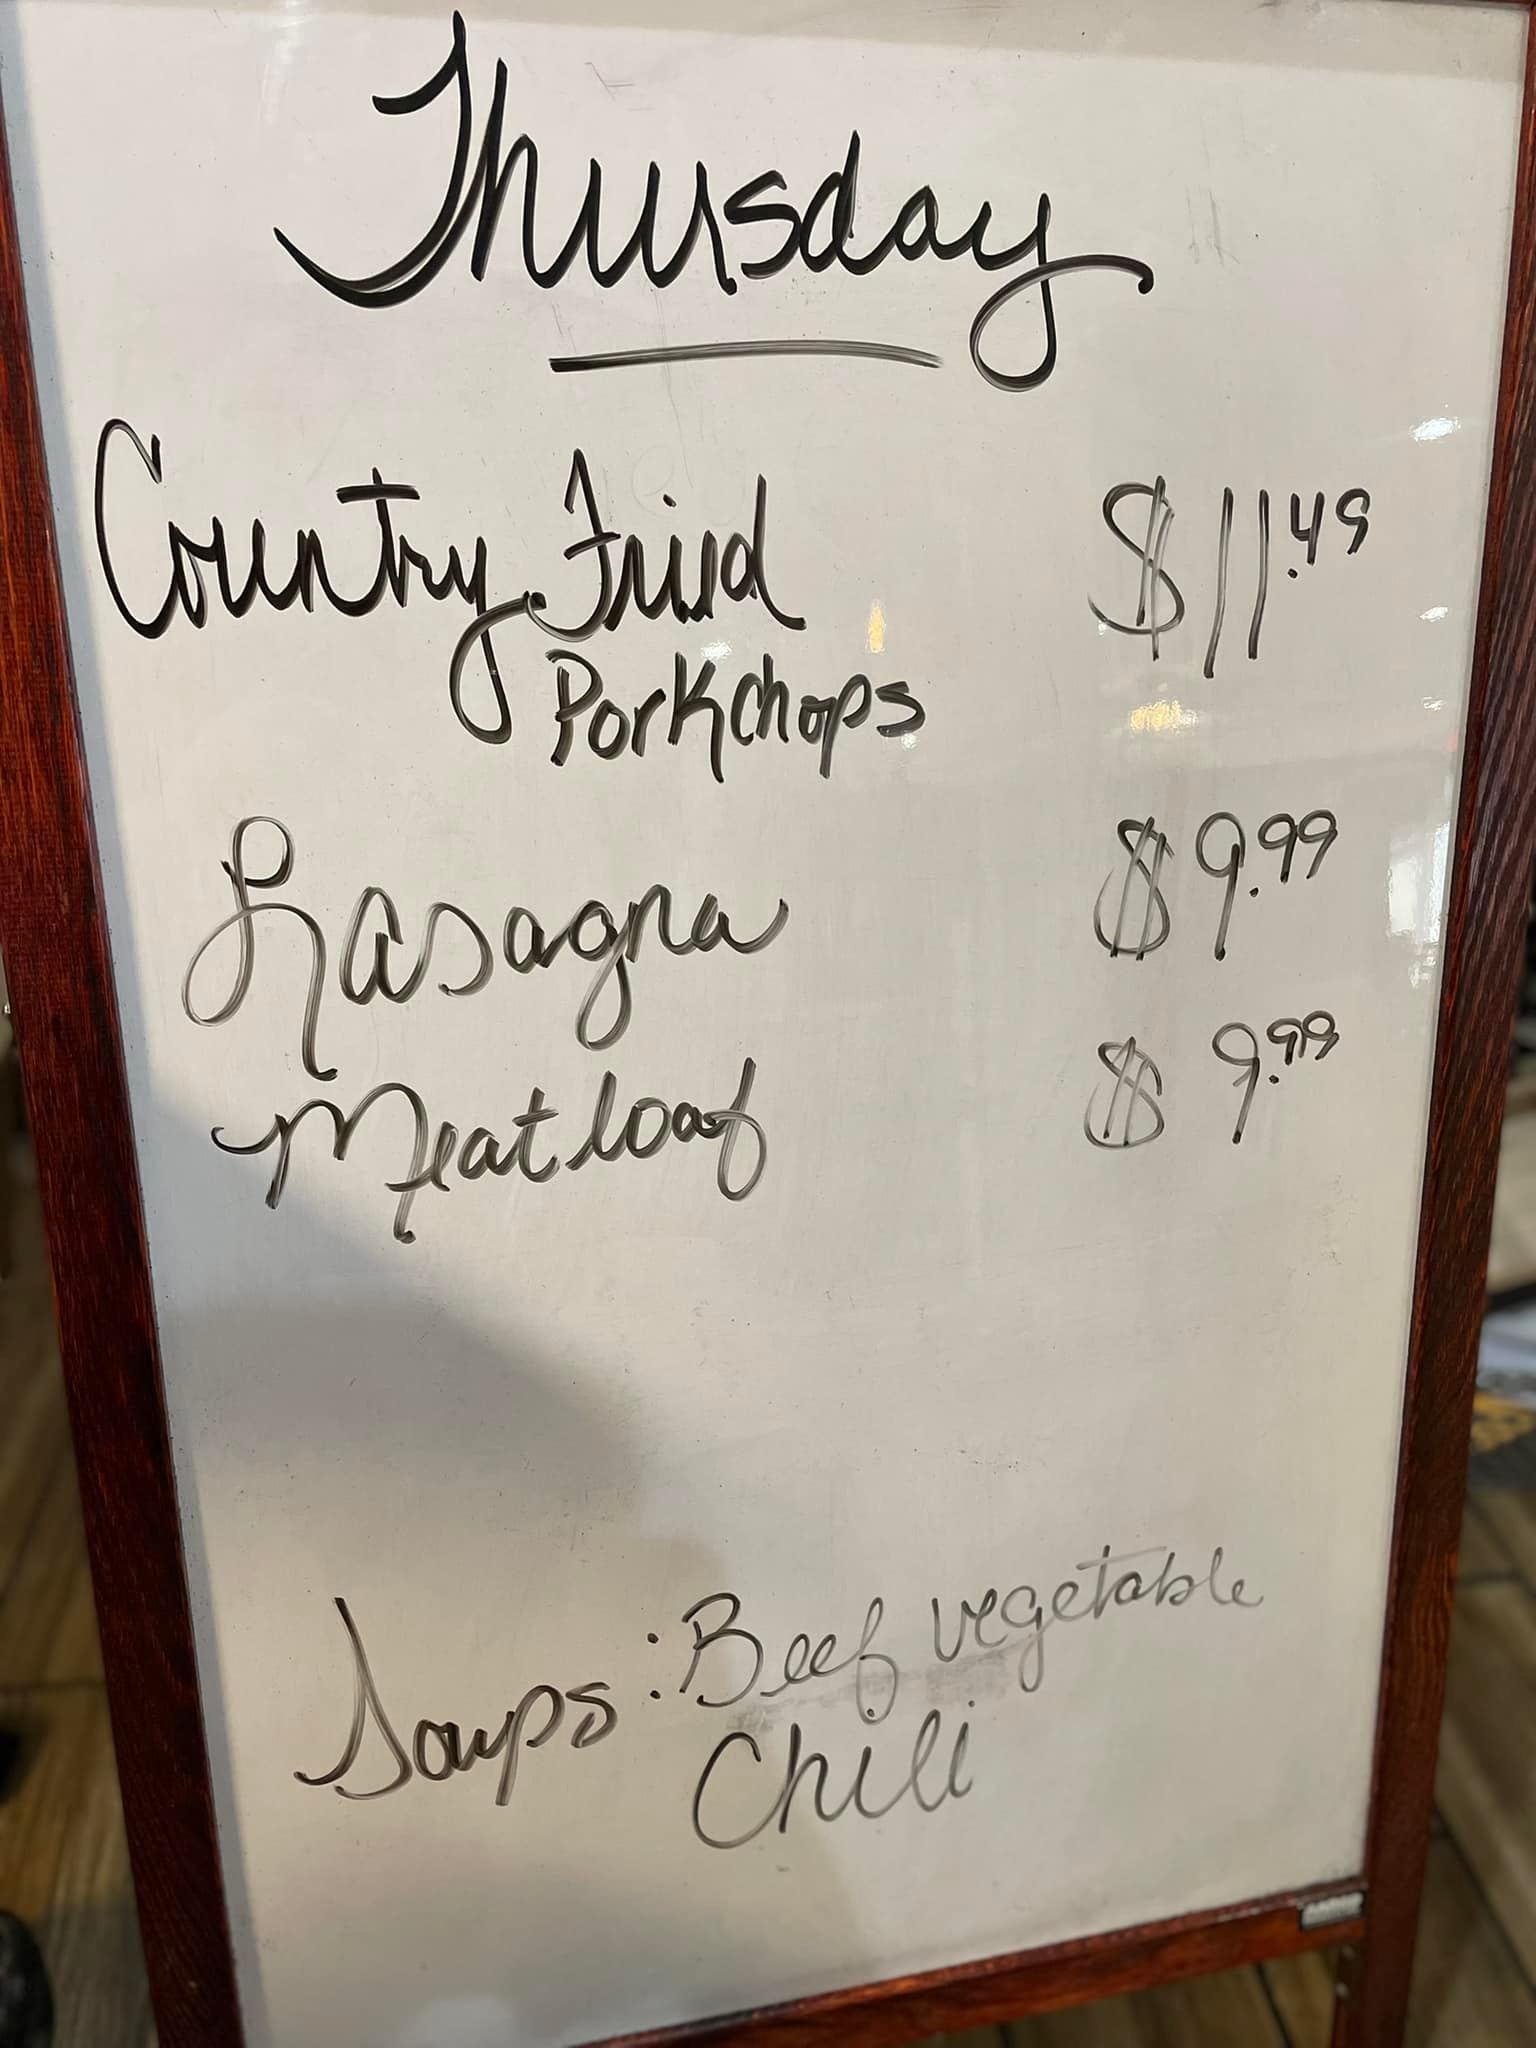 Thursday
Country Fried $11.49
Porkchops
Lasagna $9.99
Meatloaf $9.99
Soups: Beef vegetable
Chili